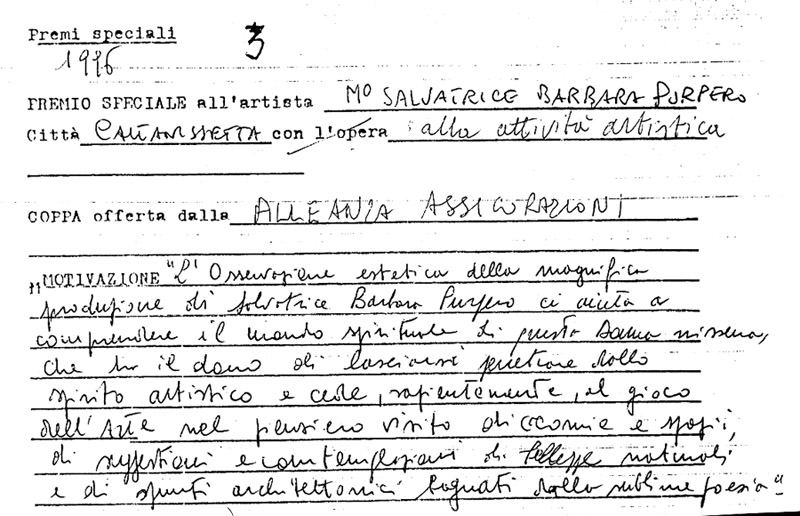 Premi speciali 3
1996
PREMIO SPECIALE all'artista Mº SALVATRICE BARBARA PURPERO
Città CALTANISSETTA con l'opera alla attività artistica
COPPA offerta dalla ALLEANZA ASSICURAZIONI
"MOTIVAZIONE "L'Osservazione estetica della magnifica
produzione di Salvatrice Barbara Purpero ci aiuta a
comprendere il mondo spirituale di questa Dama nissena,
che ha il dono di lasciarsi penetrare dallo
spirito artistico e cede, sapientemente, al gioco
dell'Arte nel pensiero visito di cromie e spazi,
di suggestioni e contemplazioni di bellezze naturali
e di spunti architettonici bagnati dalla sublime poesia"